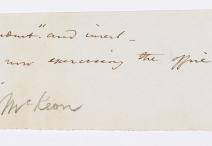 and insert –
now exercising the office
McKeon